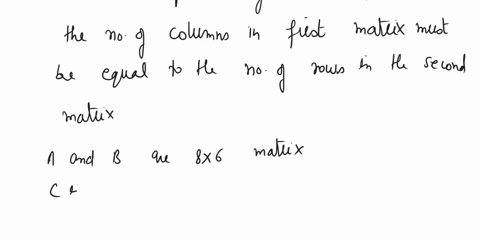 the no. of columns in first matrix must
be equal to the no. of rows in the second
matrix
A and B are 8x6 matrix
C